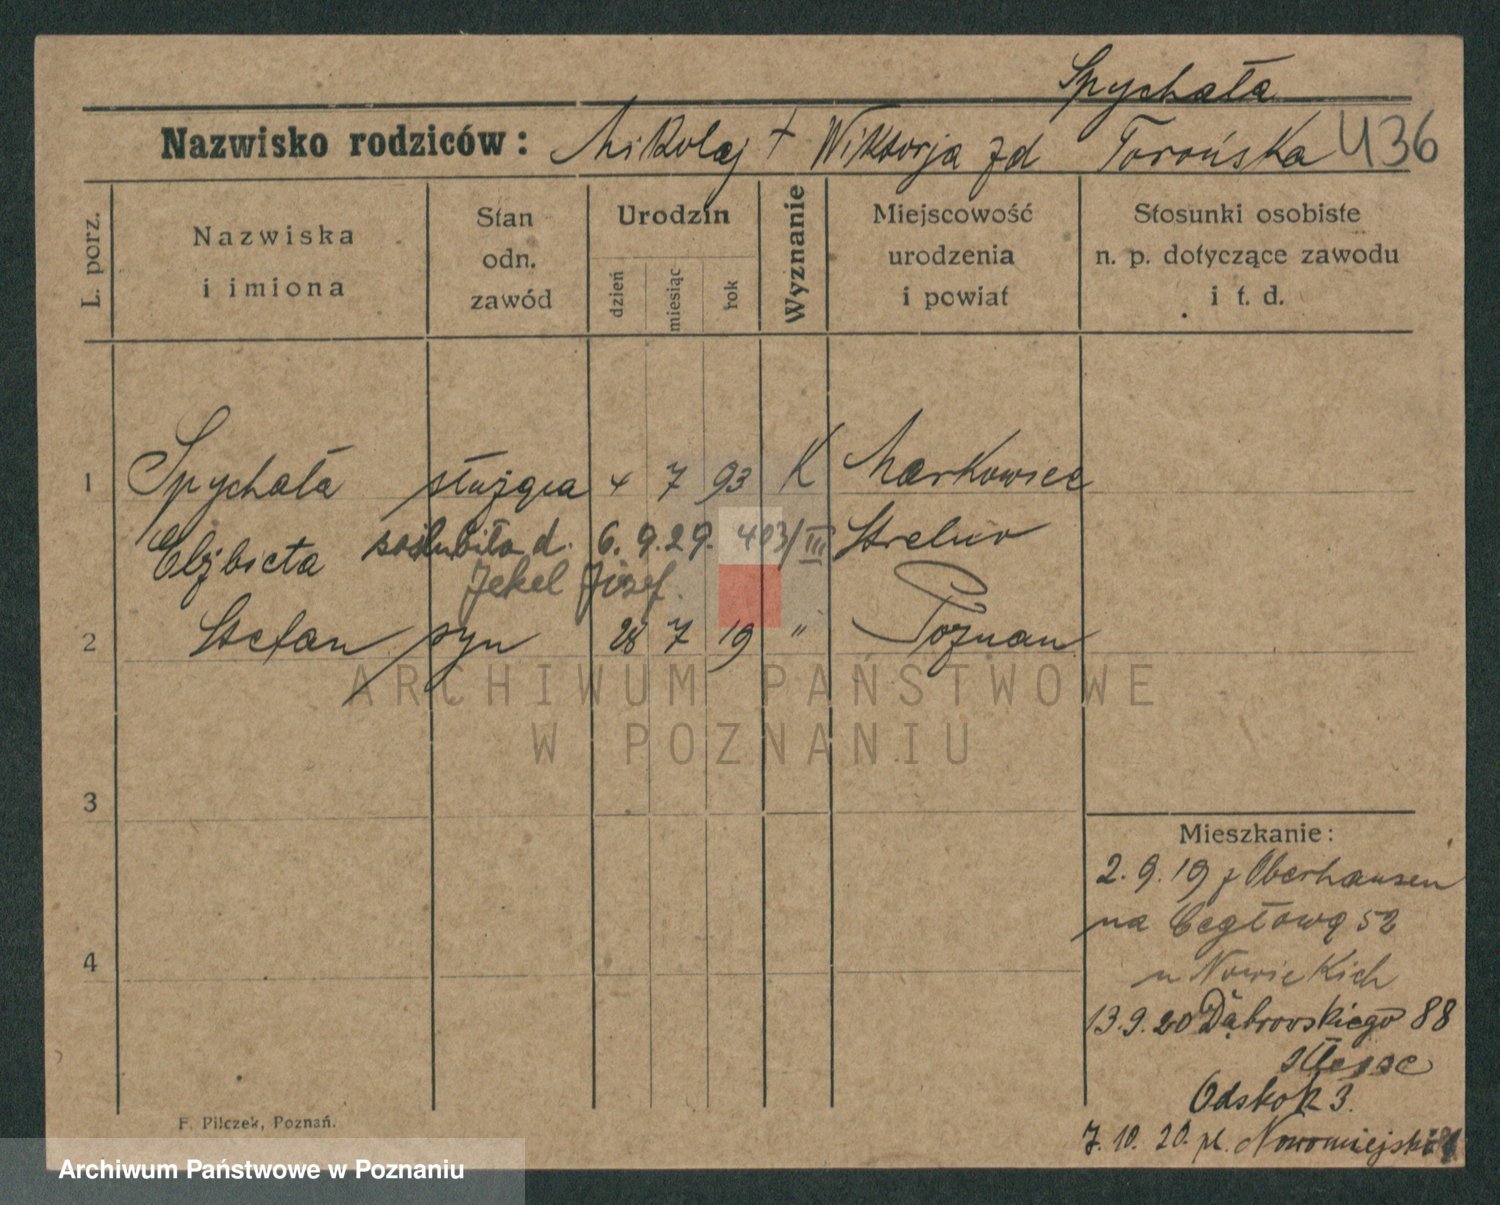 Spychała
Nazwisko rodziców: Mikołaj + Wiktorja zd Torońska 436
L. porz.
Nazwiska i imiona
Stan odn. zawód
Urodzin
dzień miesiąc rok
Wyznanie
Miejscowość urodzenia i powiat
Stosunki osobiste n. p. dotyczące zawodu i t. d.
1 Spychała służąca 4 7 93 K Markowice
Elżbieta poślubiła d. 6. 9. 29. 403/III Strelno
Jekel Józef.
2 Stefan syn 28 7 19 " Poznan
ARCHIWUM PAŃSTWOWE
W POZNANIU
3
Mieszkanie:
2. 9. 19 z Oberhausen
na Cegłową 52
u Nowickich
4
13. 9. 20 Dąbrowskiego 88
Odskok 3.
7. 10. 20. pl. Nowomiejski
F. Pilczek, Poznań.
Archiwum Państwowe w Poznaniu